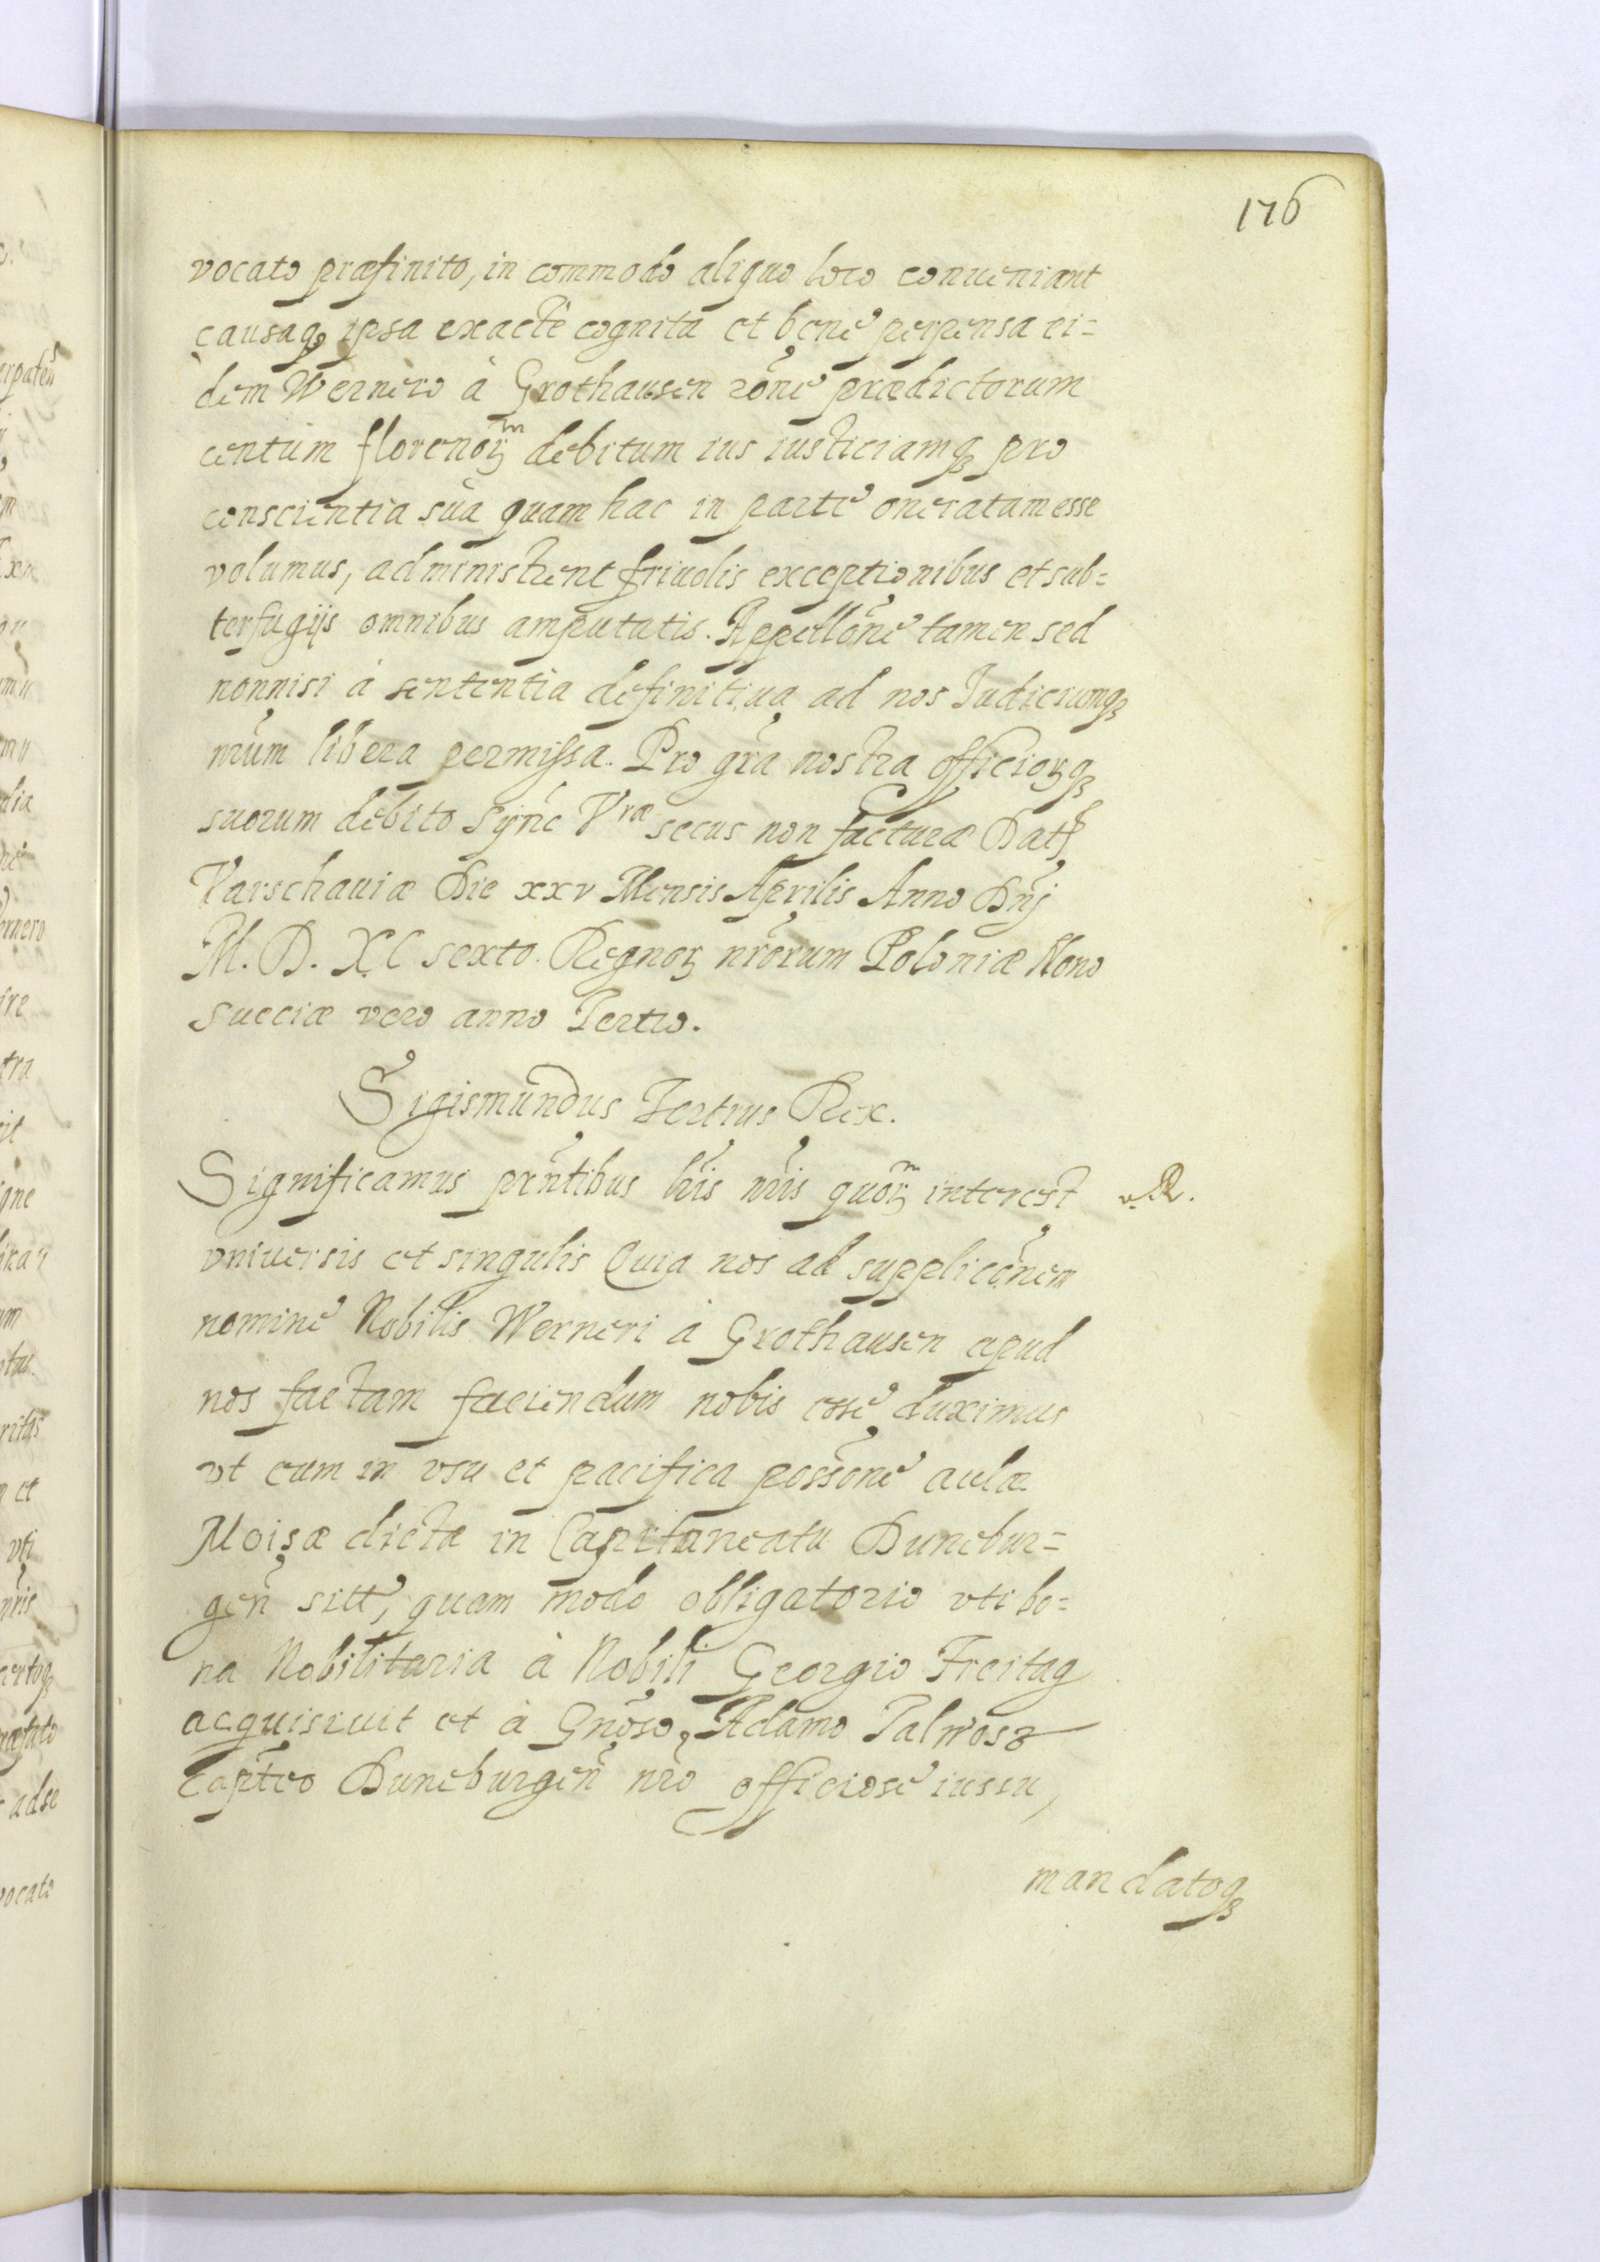 176
vocato præfinito, in commodo aliquo loco conueniant
causaq₃ ipsa exactè cognita et bene perpensa ei=
dem Wernero à Grothausen rōne prædictorum
centum florenoꝝ debitum ius iusticiamq₃ pro
conscientia sua quam hac in parte oneratam esse
volumus, administrent friuolis exceptionibus et sub=
terfugijs omnibus amputatis. Appellōne tamen sed
nonnisi à sententia definitiua ad nos Iudiciumq₃
nrūm libera permissa. Pro grā nostra officioꝝq₃
suorum debito Sync Vræ secus non facturæ Datt
Varschauiæ Die xxv Mensis Aprilis Anno Dnī
M. D. XC sexto. Regnoꝝ nrōrum Poloniæ Nono
Sueciæ vero anno Tertio.
Sigismundus Tertius Rex.
Significamus prn̄tibus lrīs nrīs quoꝝ interest
vniuersis et singulis Quia nos ad supplicōnem
nomine Nobilis Werneri à Grothausen apud
nos factam faciendum nobis esse duximus
vt eum in vsu et pacifica possōne aulæ
Moisæ dictæ in Capitaneatu Dunebur=
gen̄ sitt, quam modo obligatorio vti bo=
na Nobilitaria à Nobili Georgio Freitag
acquisiuit et à Gnōso Adamo Talwosz
Captēo Duneburgen̄ nrō officiose iussu,
mandatoq₃